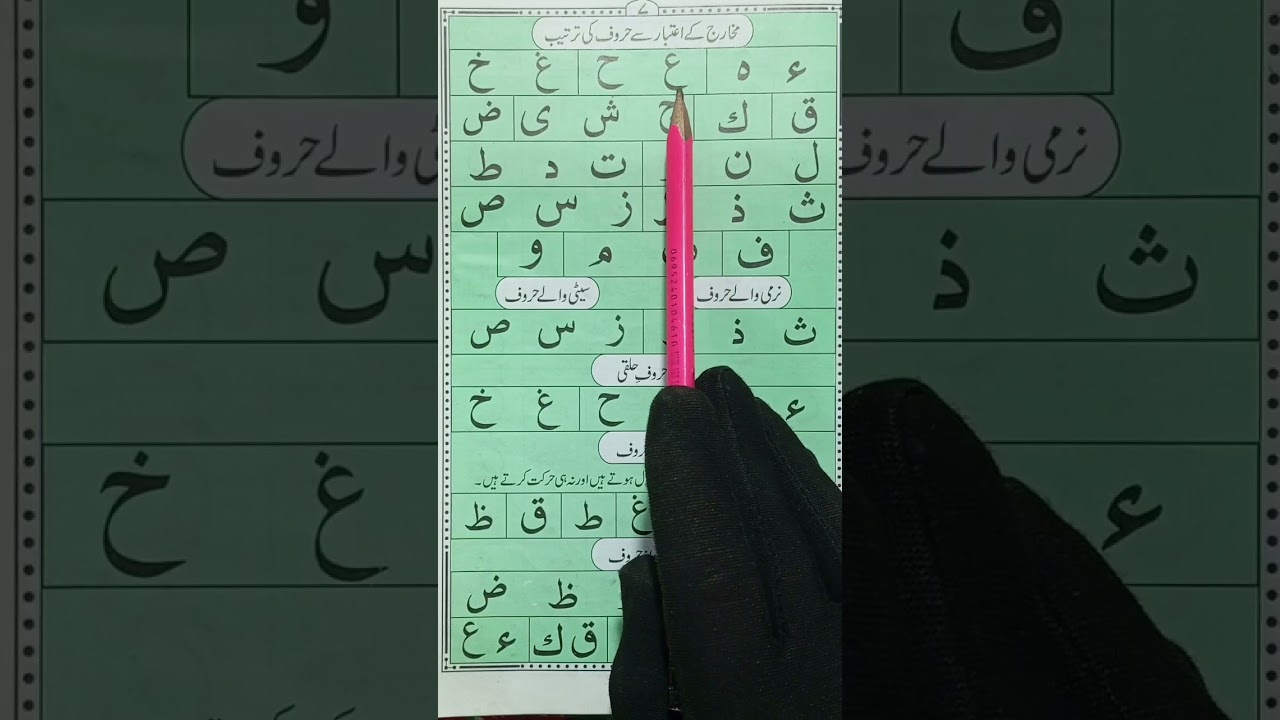 ۷
مخارج کے اعتبار سے حروف کی ترتیب
ء ہ ع ح غ خ
ق ك ش ی ض
ل ن ت د ط
ث ذ ز س ص
ف م و
نرمی والے حروف سیٹی والے حروف
ث ذ ز س ص
حروفِ حلقی
ء ح غ خ
ہوتے ہیں اور نہ ہی حرکت کرتے ہیں۔
غ ط ق ظ
ظ ض
ق ك ء ع
0695240104610